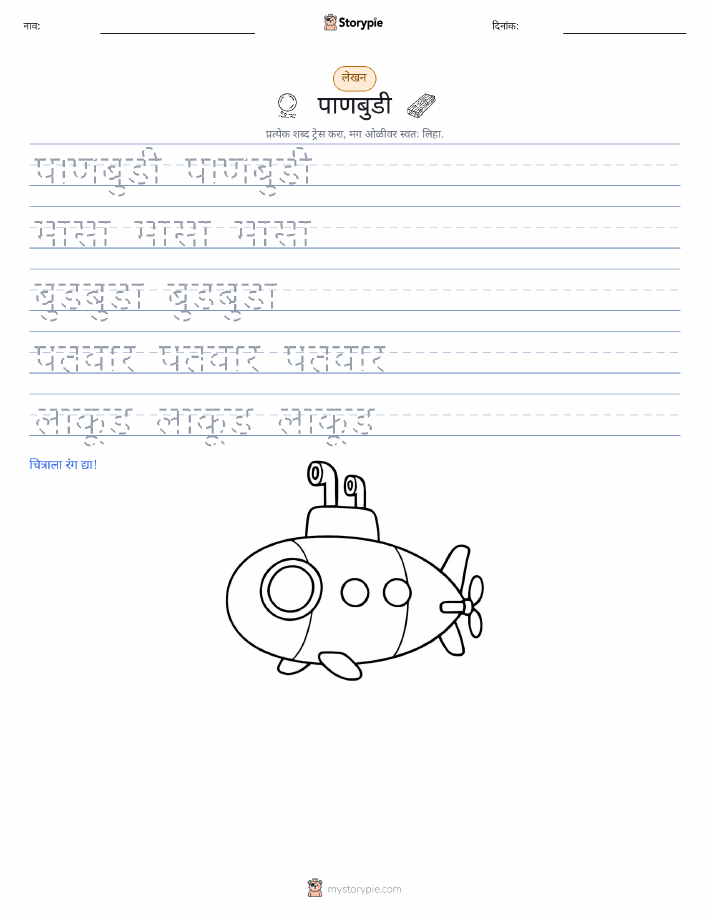 नाव:
Storypie
दिनांक:
लेखन
पाणबुडी
प्रत्येक शब्द ट्रेस करा, मग ओळीवर स्वतः लिहा.
पाणबुडी पाणबुडी
मासा मासा मासा
बुडबुडा बुडबुडा
पतवार पतवार पतवार
लाकूड लाकूड लाकूड
चित्राला रंग द्या!
mystorypie.com